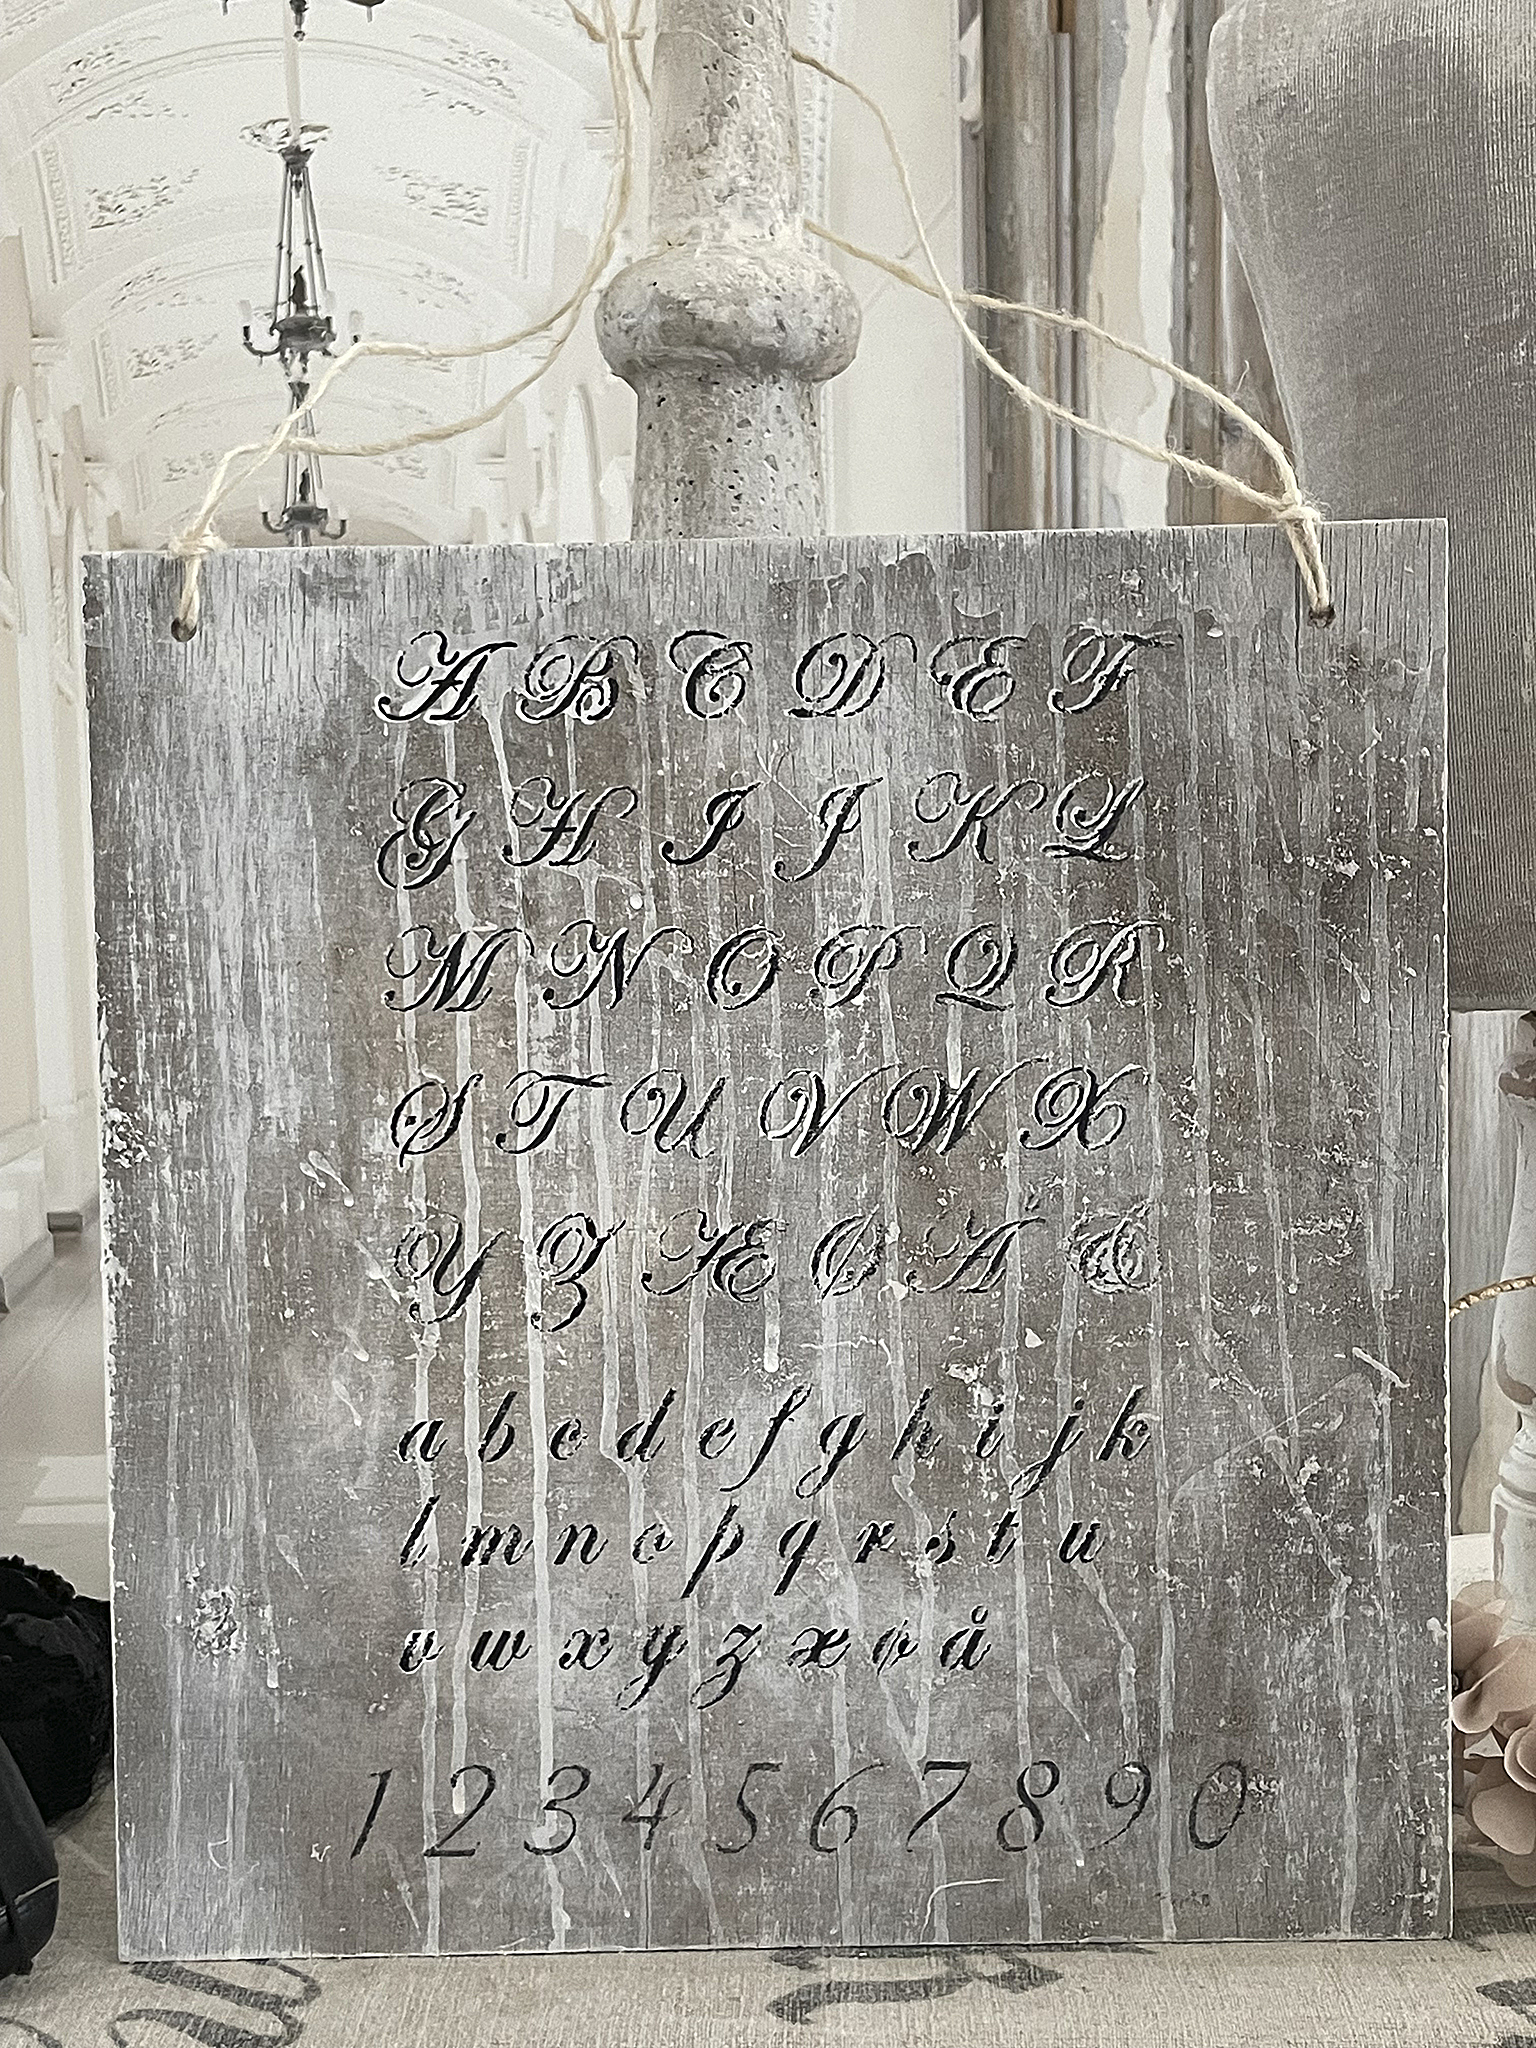 A B C D E F
G H I J K L
M N O P Q R
S T U V W X
Y Z Æ Ø Å
a b c d e f g h i j k
l m n o p q r s t u
v w x y z æ ø å
1 2 3 4 5 6 7 8 9 0